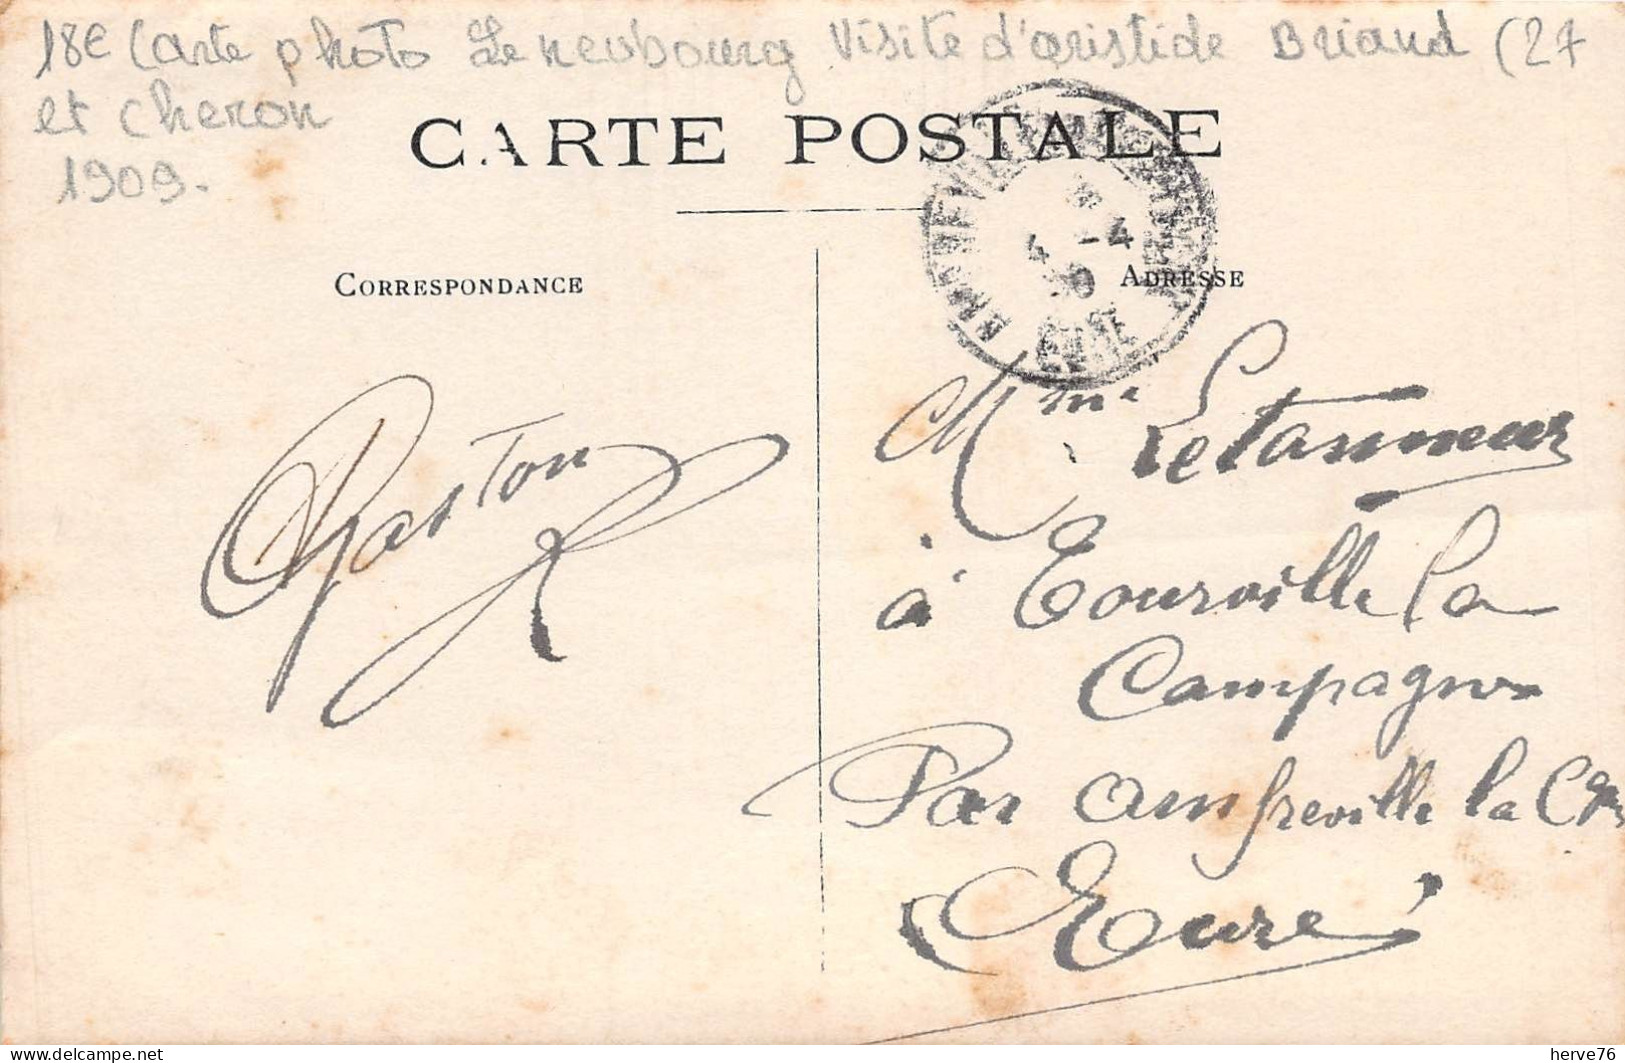 18€ Carte photo Le neubourg Visite d'aristide Briand (27
et cheron
1909.
CARTE POSTALE
4 -4
EURE
CORRESPONDANCE
ADRESSE
Gaston
Mme Letanneur
à Tourville la
Campagne
Par amfreville la Cgne
Eure
delcampe.net
herve76